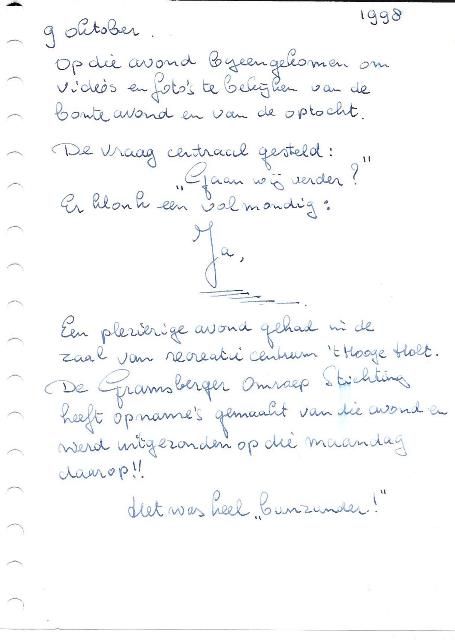 1998
9 oktober.
Op die avond byeengekomen om
video's en foto's te bekijken van de
bonte avond en van de optocht.
De vraag centraal gesteld:
„Gaan wij verder?"
Er klonk een volmondig:
Ja,
Een plezierige avond gehad in de
zaal van recreatie centrum 't Hooge Holt.
De Gramsberger Omroep Stichting
heeft opname's gemaakt van die avond en
werd uitgezonden op die maandag
daarop!!
Het was heel „bunzunder!"